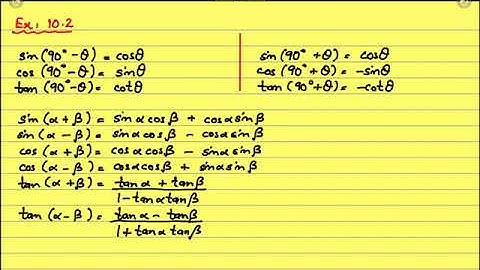 Ex: 10.2
sin(90° - θ) = cosθ
cos(90° - θ) = sinθ
tan(90° - θ) = cotθ
sin(90° + θ) = cosθ
cos(90° + θ) = -sinθ
tan(90° + θ) = -cotθ
sin(α + β) = sinα cosβ + cosα sinβ
sin(α - β) = sinα cosβ - cosα sinβ
cos(α + β) = cosα cosβ - sinα sinβ
cos(α - β) = cosα cosβ + sinα sinβ
tan(α + β) = tanα + tanβ
1 - tanα tanβ
tan(α - β) = tanα - tanβ
1 + tanα tanβ